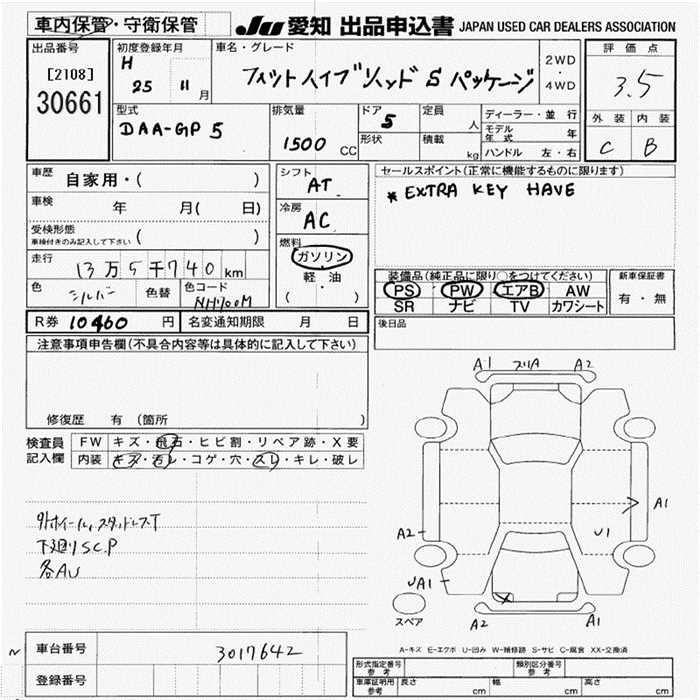 車内保管・守衛保管
JU 愛知 出品申込書 JAPAN USED CAR DEALERS ASSOCIATION
出品番号
[2108]
30661
初度登録年月
H
25 11 月
車名・グレード
フィットハイブリッド S パッケージ
2WD
・
4WD
評価点
3.5
外装 内装
C B
型式
DAA-GP5
排気量
1500 CC
ドア
5
形状
定員
人
積載
kg
ディーラー・並行
モデル年式 年
ハンドル 左・右
車歴
自家用・( )
車検
年 月( 日)
受検形態
車検付きのみ記入して下さい ( )
走行
13万5千740km
色
シルバー
色替
色コード
NH700M
シフト
AT
冷房
AC
燃料
ガソリン
軽・油
( )
セールスポイント(正常に機能するものに限ります)
* EXTRA KEY HAVE
装備品(純正品に限り○をつけてください)
PS PW エアB AW
SR ナビ TV カワシート
新車保証書
有・無
R券 10460 円
名変通知期限 月 日
後日品
注意事項申告欄(不具合内容等は具体的に記入して下さい)
修復歴 有 (箇所 )
検査員
記入欄
FW キズ・飛石・ヒビ割・リペア跡・X要
内装 キズ・汚レ・コゲ・穴・スレ・キレ・破レ
外ホイール、スタッドレスT
下廻りS.C.P
各AU
A1 スリA A2
A1
A2
U1
UA1
A2 A1
スペア
A-キズ E-エクボ U-凹み W-補修跡 S-サビ C-腐食 XX-交換済
~ 車台番号 3017642
登録番号
形式指定番号
参考
類別区分番号
参考
車庫証明用
参考
長さ cm 幅 cm 高さ cm